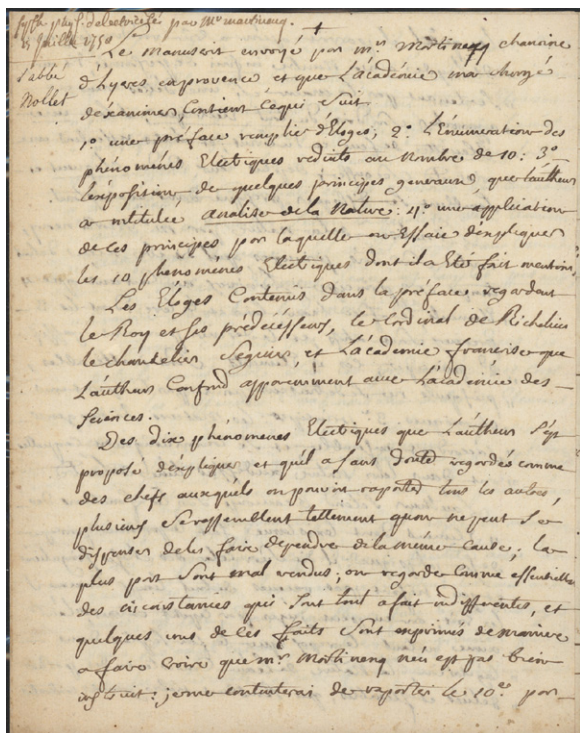 syst. phys. de l'electricité par Mr martinenq.
8 Juillet 1750
L'abbé
Nollet
Le manuscrit envoyé par mr. Martinenq chanoine
d'hyeres en provence et que L'académie m'a chargé
d'examiner, Contient ce qui suit
1.° une préface remplie d'Eloges; 2.° L'Enumeration des
phénoménes Electriques reduits au nombre de 10: 3.°
L'exposition de quelques principes generaux, que L'autheur
a intitulée analise de la Nature: 4.° une application
de ces principes par laquelle on Essaie d'expliquer
les 10 phenoménes Electriques dont il a Eté fait mention,
Les Eloges Contenus dans la préface regardent
le Roy et ses prédécésseurs, le Cardinal de Richelieu
le chancelier Seguier, et L'académie françoise que
L'autheur Confond apparemment avec L'académie des
sciences.
Des dix phénoménes Electriques que L'autheur s'est
proposé d'expliquer et qu'il a sans doute regardés comme
des chefs auxquels on pouvoit raporter tous les autres,
plusieurs se ressemblent tellement qu'on ne peut se
dispenser de les faire dependre de la méme cause; la
plus part sont mal rendus; on regarde Comme essentielles
des circonstances qui sont tout a fait indifferentes, et
quelques uns de ces faits sont exprimés de maniere
a faire croire que mr. Martinenq n'en est pas bien
instruit: je me contenterai de raporter le 10.e par